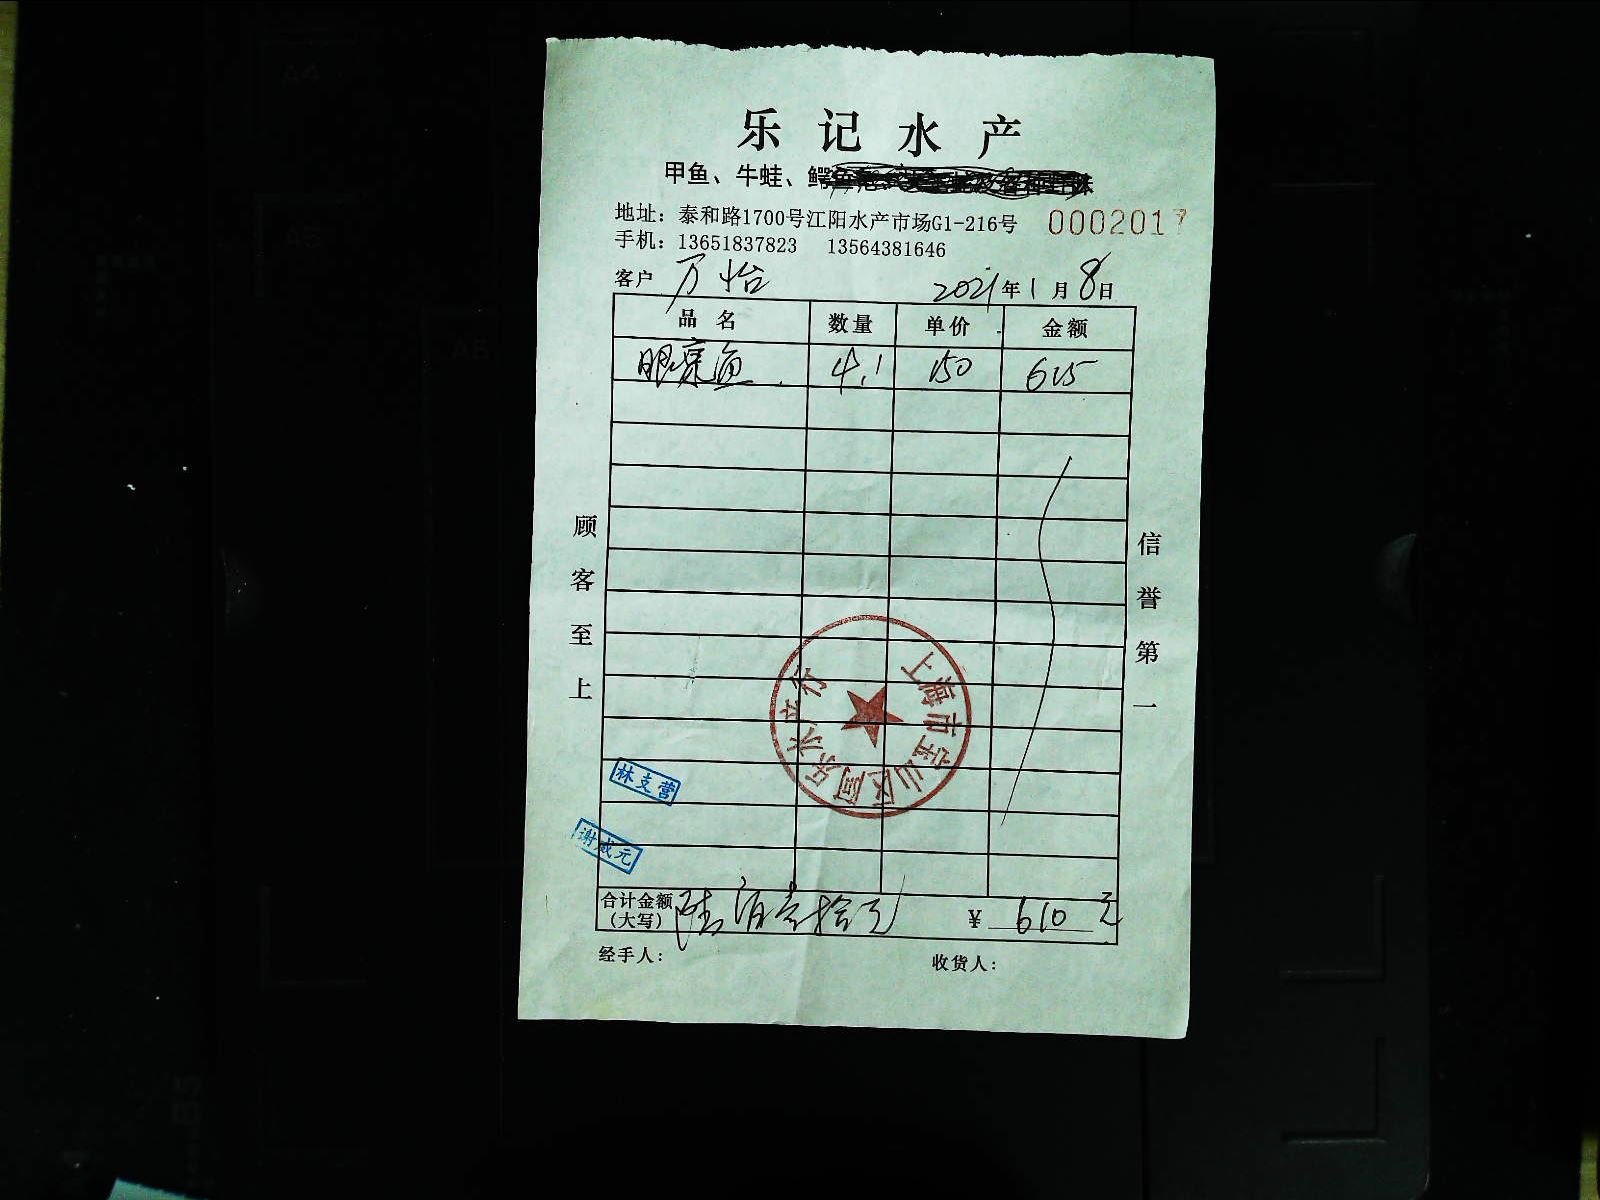 乐记水产
甲鱼、牛蛙、鳄
地址：泰和路1700号江阳水产市场G1-216号 0002017
手机：13651837823 13564381646
客户 万怡 2021年1月8日
品名 数量 单价 金额
眼 鱼 4.1 150 615
顾客至上
信誉第一
上海市宝山区阿乐水产行
林支营
谢成元
合计金额 陆佰壹拾元 ¥ 610元
（大写）
经手人： 收货人：